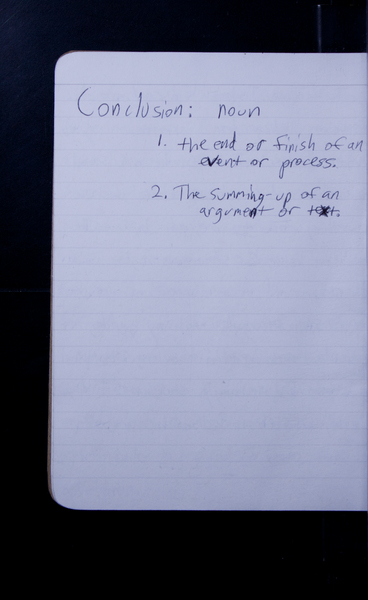 Conclusion: noun
1. the end or finish of an
event or process.
2. The summing-up of an
argument or text.